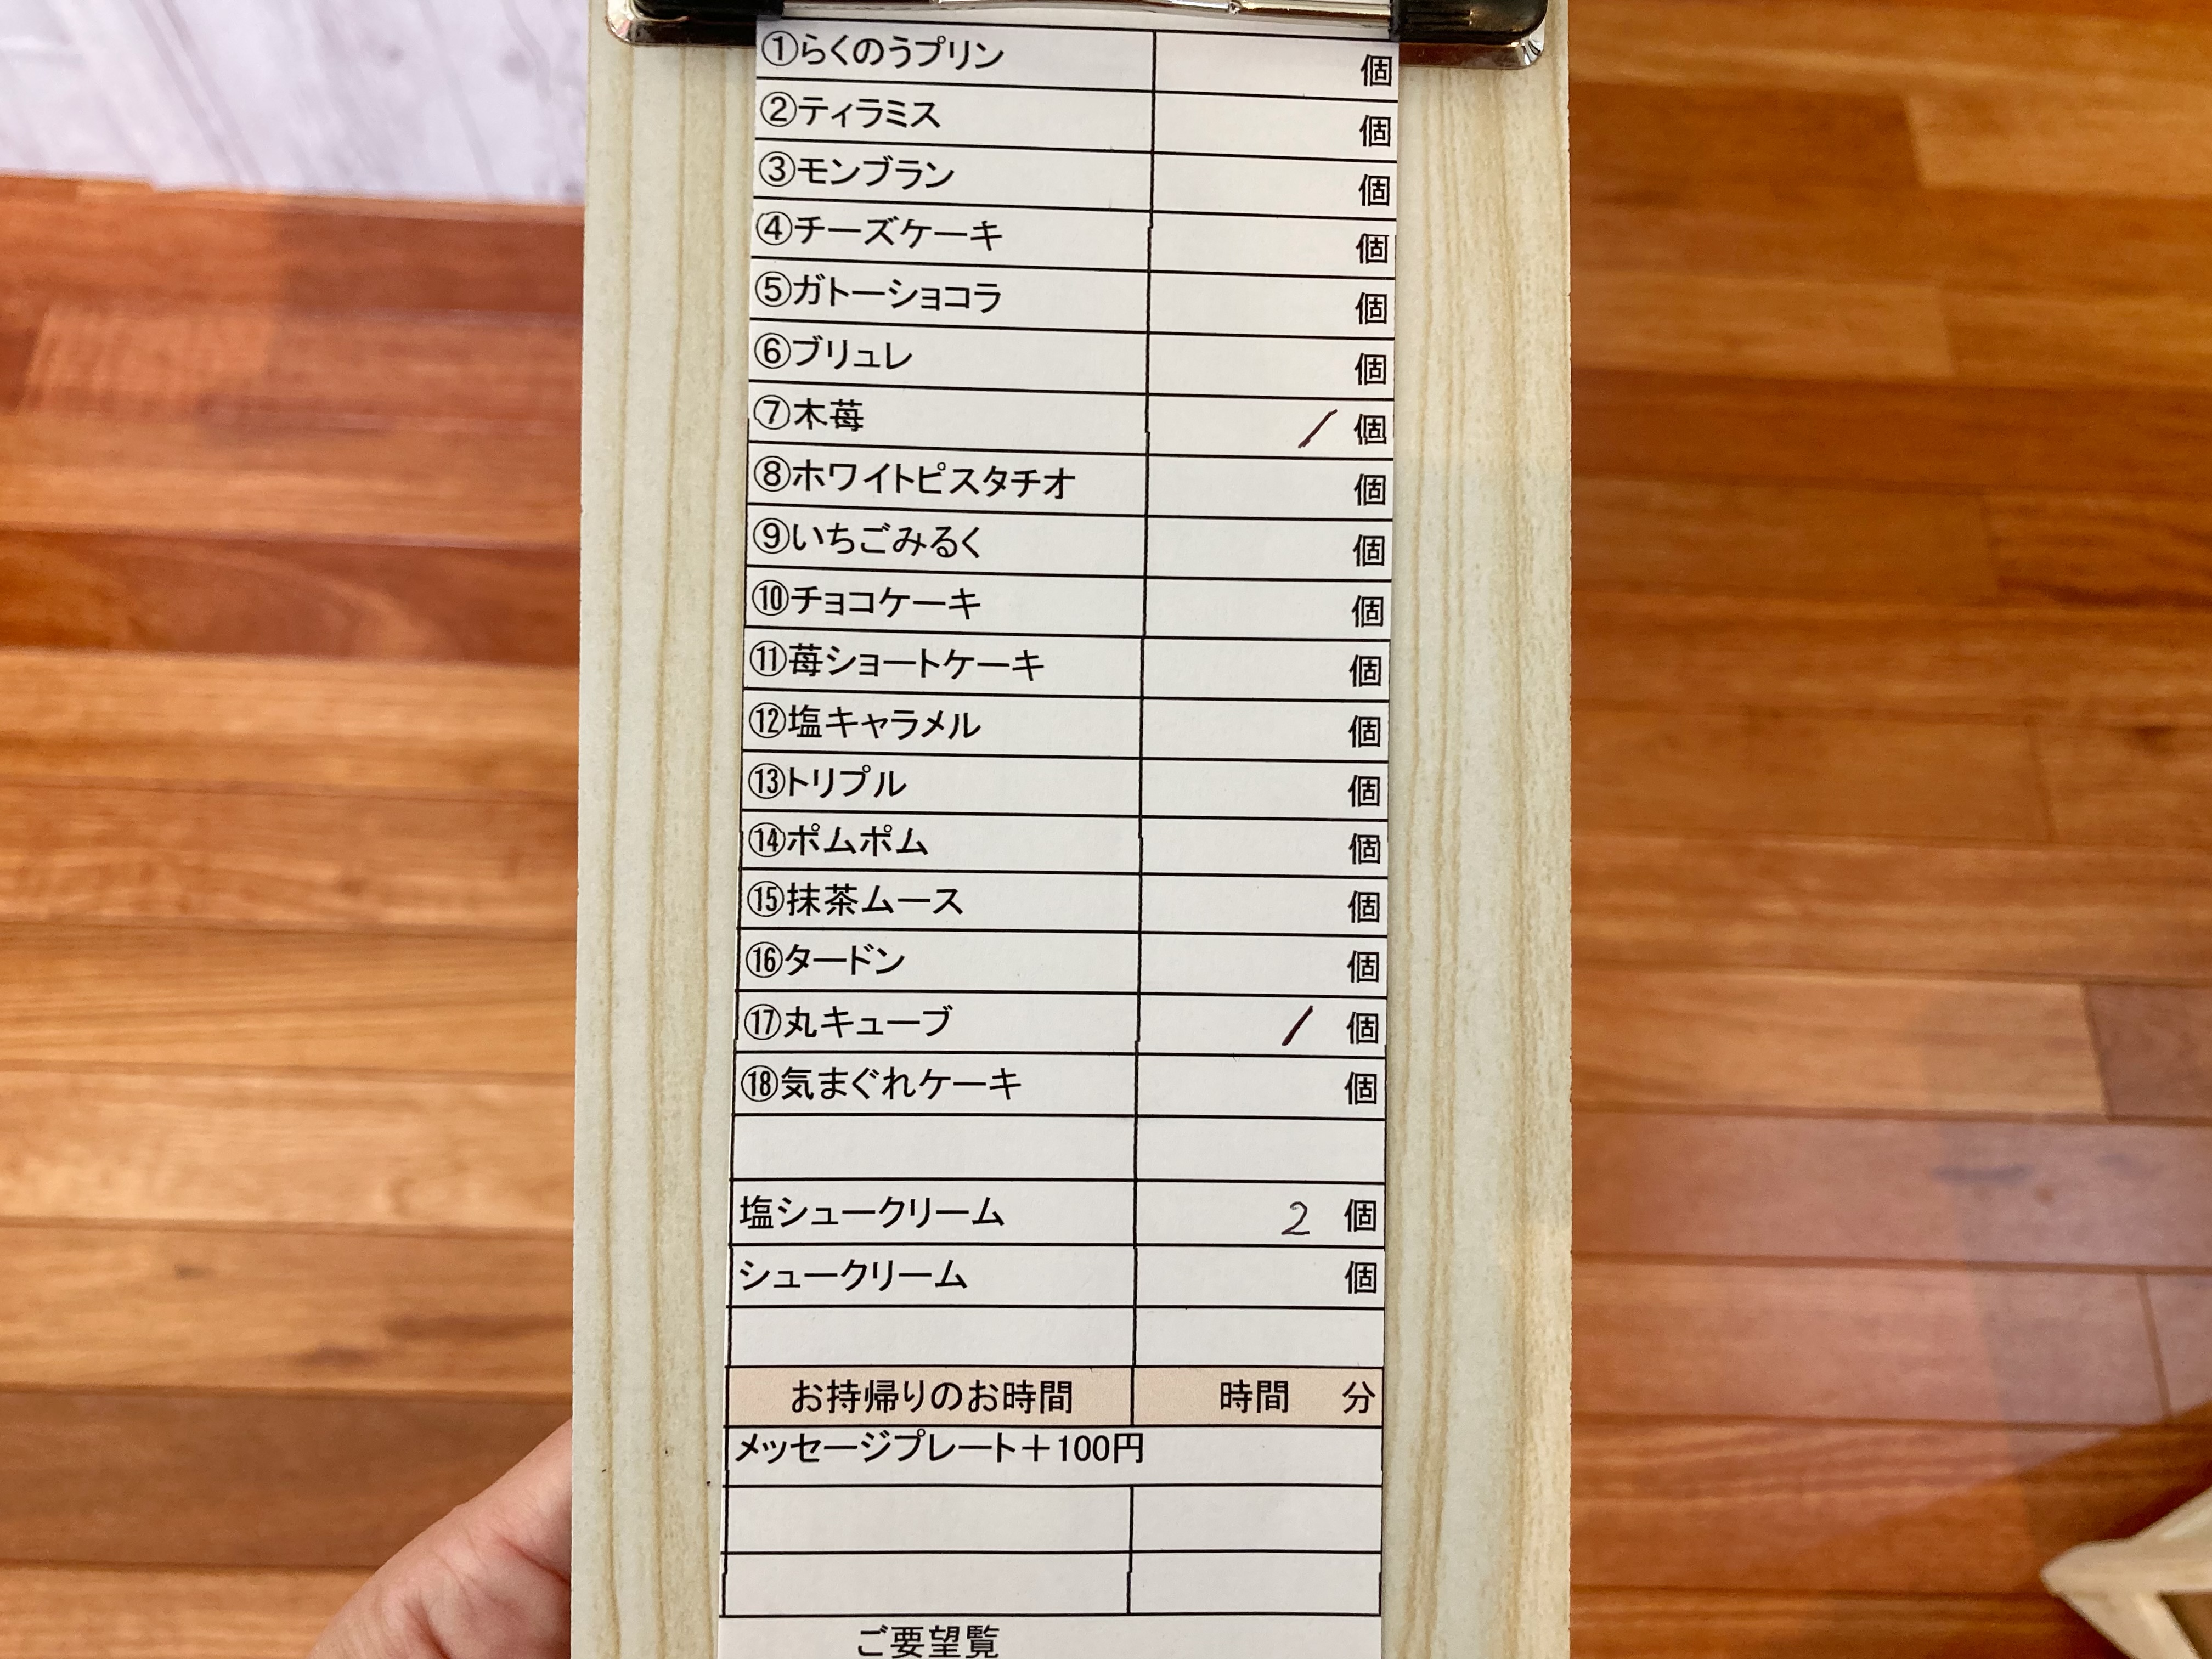 ①らくのうプリン 個
②ティラミス 個
③モンブラン 個
④チーズケーキ 個
⑤ガトーショコラ 個
⑥ブリュレ 個
⑦木苺 1 個
⑧ホワイトピスタチオ 個
⑨いちごみるく 個
⑩チョコケーキ 個
⑪苺ショートケーキ 個
⑫塩キャラメル 個
⑬トリプル 個
⑭ポムポム 個
⑮抹茶ムース 個
⑯タードン 個
⑰丸キューブ 1 個
⑱気まぐれケーキ 個
塩シュークリーム 2 個
シュークリーム 個
お持帰りのお時間 時間 分
メッセージプレート＋100円
ご要望覧